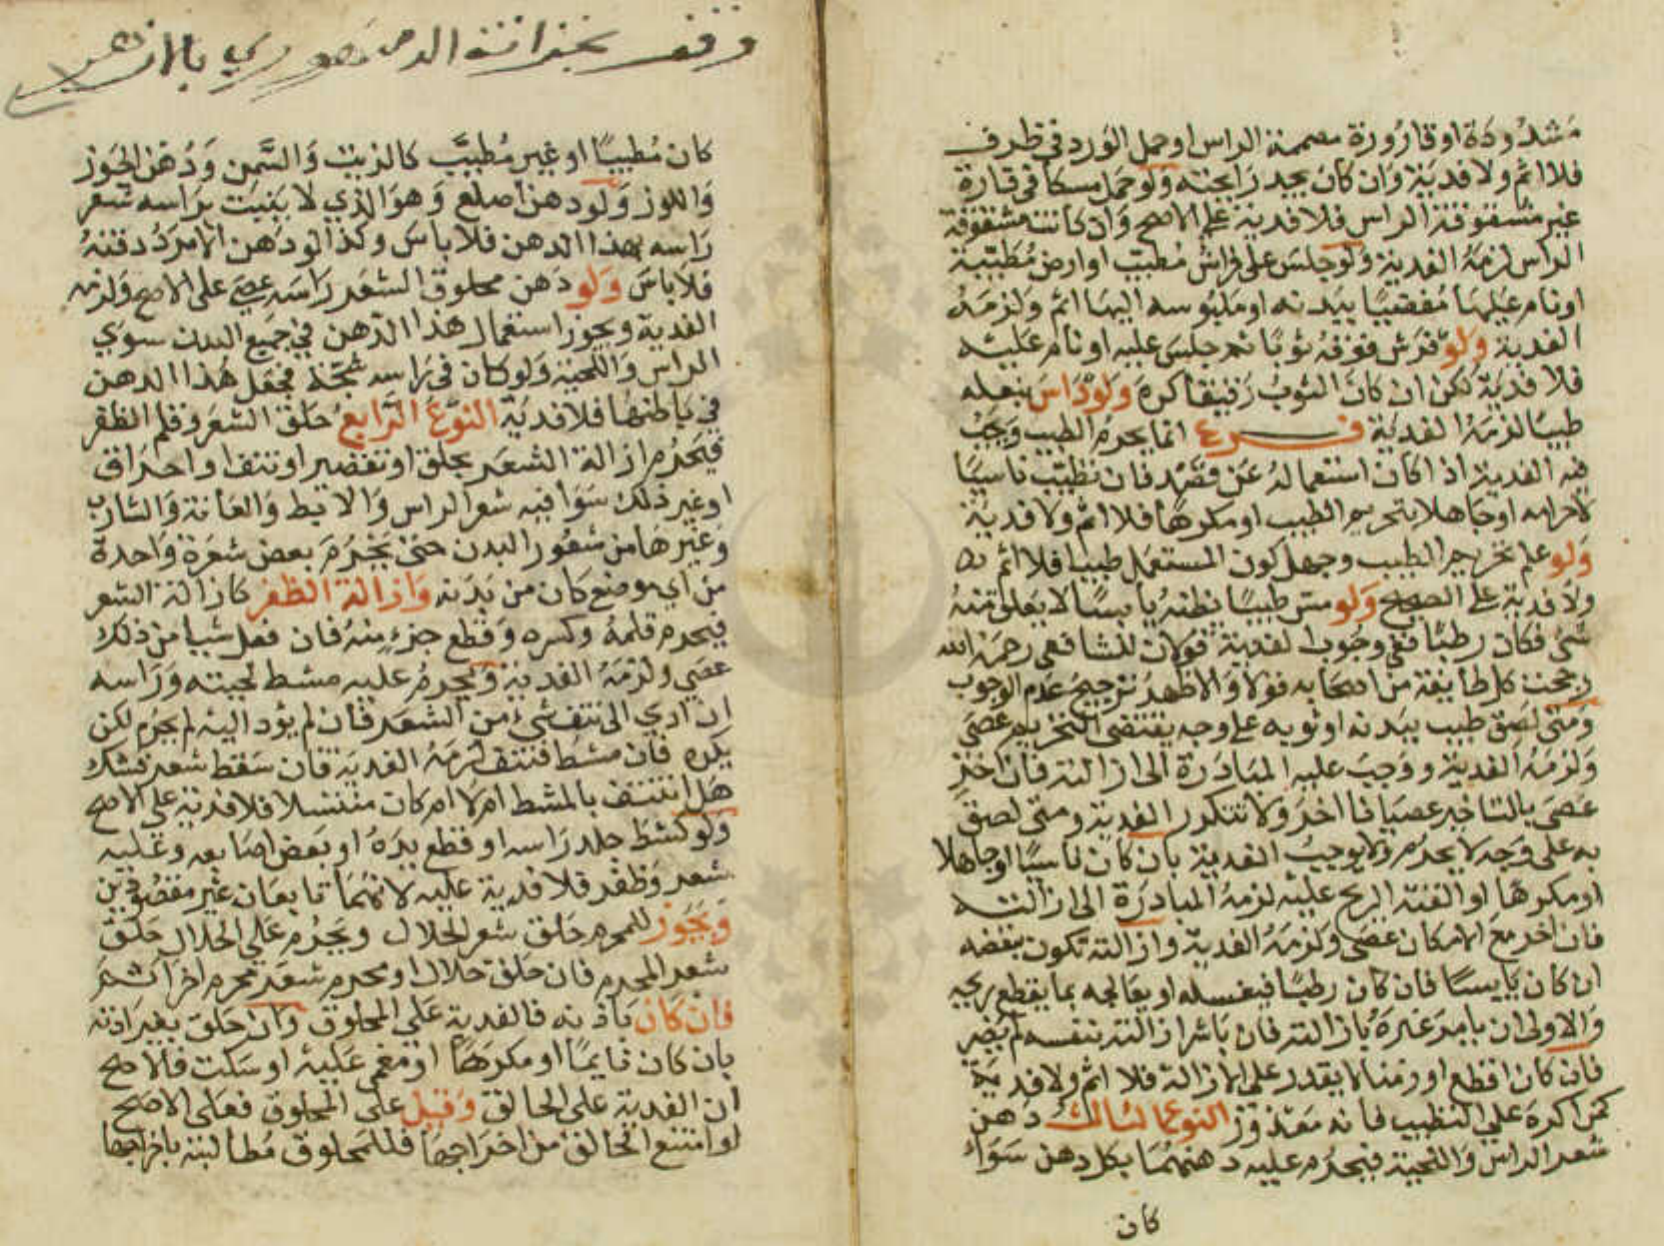 مشدودة او قارورة مصممة الراس او حمل الورد في ظرف
فلا اثم ولا فدية وان كان يجد رايحته ولو حمل مسكا في قارة
غير مشقوقة الراس فلا فدية على الاصح وان كانت مشقوقة
الراس لزمه الفدية ولو جلس على فراش مطيب او ارض مطيبة
او نام عليها مفضيا ببدنه او ملبوسه اليها اثم ولزمه
الفدية ولو فرش فوقه ثوبا ثم جلس عليه او نام عليه
فلا فدية لكن ان كان الثوب رقيقا كره ولو داس بنعله
طيبا لزمه الفدية فرع انما يحرم الطيب ويجب
فيه الفدية اذا كان استعماله عن قصد فان تطيب ناسيا
لاحرامه او جاهلا بتحريم الطيب او مكرها فلا اثم ولا فدية
ولو علم تحريم الطيب وجهل كون المستعمل طيبا فلا اثم
ولا فدية على الصحيح ولو مس طيبا يظنه يابسا لا يعلق منه
شئ فكان رطبا ففي وجوب الفدية قولان للشافعي رحمه الله
رجحت كل طايفة من اصحابه قولا والاظهر ترجيح عدم الوجوب
ومتى لصق طيب ببدنه او ثوبه على وجه يقتضى التحريم عصى
ولزمه الفدية ووجب عليه المبادرة الى ازالته فان اخر
عصى بالتاخير عصيانا اخر ولا تتكرر الفدية ومتى لصق
به على وجه لا يحرم ولا يوجب الفدية بان كان ناسيا او جاهلا
او مكرها او القته الريح عليه لزمه المبادرة الى ازالته
فان اخر مع الامكان عصى ولزمه الفدية وازالته تكون بنفضه
ان كان يابسا فان كان رطبا فيغسله او يعالجه بما يقطع ريحه
والاولى ان يامر غيره بازالته فان باشر ازالته بنفسه لم يضر
فان كان اقطع او زمنا لا يقدر على الازالة فلا اثم ولا فدية
كمن اكره على التطييب فانه معذور النوع الثالث دهن
شعر الراس واللحية فيحرم عليه دهنهما بكل دهن سواء
كان
وقف بخزانة الدمنهوري بالازهر
كان مطيبا او غير مطيب كالزيت والسمن ودهن الجوز
واللوز ولو دهن اصلع وهو الذي لا ينبت براسه شعر
راسه بهذا الدهن فلا باس وكذا لو دهن الامرد ذقنه
فلا باس ولو دهن محلوق الشعر راسه عصى على الاصح ولزمه
الفدية ويجوز استعمال هذا الدهن في جميع البدن سوي
الراس واللحية ولو كان في راسه شجة فجعل هذا الدهن
في باطنها فلا فدية النوع الرابع حلق الشعر وقلم الظفر
فيحرم ازالة الشعر بحلق او تقصير او نتف او احراق
او غير ذلك سوا فيه شعر الراس والابط والعانة والشارب
وغيرها من شعور البدن حتى يحرم بعض شعرة واحدة
من اي موضع كان من بدنه وازالة الظفر كازالة الشعر
فيحرم قلمه وكسره وقطع جزء منه فان فعل شيا من ذلك
عصى ولزمه الفدية ويحرم عليه مشط لحيته وراسه
ان ادي الى نتف شيء من الشعر فان لم يؤد اليه لم يحرم لكن
يكره فان مشط فنتف لزمه الفدية فان سقط شعر فشك
هل انتتف بالمشط ام لا ام كان منتسلا فلا فدية على الاصح
ولو كشط جلد راسه او قطع يده او بعض اصابعه وعليه
شعر وظفر فلا فدية عليه لانهما تابعان غير مقصودين
ويجوز للمحرم حلق شعر الحلال ويحرم على الحلال حلق
شعر المحرم فان حلق حلال او محرم شعر محرم اخر اثم
فان كان باذنه فالفدية على المحلوق وان حلق بغير اذنه
بان كان نايما او مكرها او مغمى عليه او سكت فالاصح
ان الفدية على الحالق وقيل على المحلوق فعلى الاصح
لو امتنع الحالق من اخراجها فللمحلوق مطالبته باخراجها